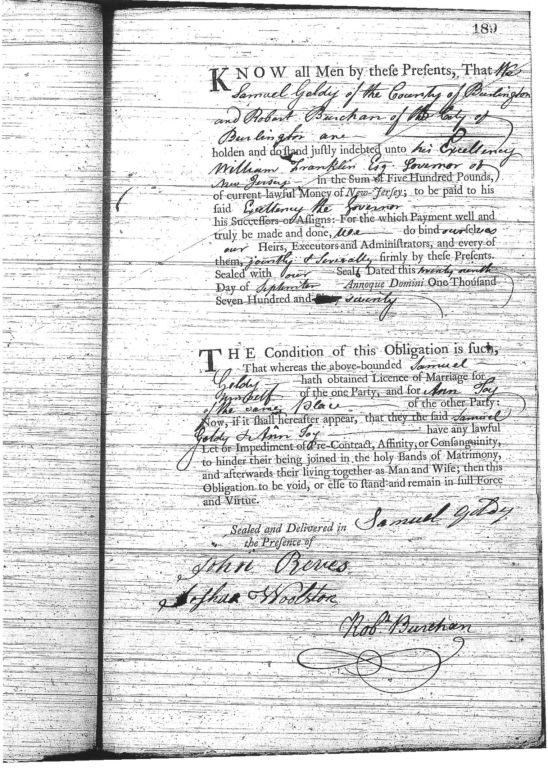 189
KNOW all Men by theſe Preſents, That We
Samuel Geldy of the County of Burlington
and Robert Burchan of the City of
Burlington are
holden and do ſtand juſtly indebted unto his Excellency
William Franklin Esq. Governor of
New Jersey in the Sum of Five Hundred Pounds,
of current lawful Money of New-Jerſey; to be paid to his
ſaid Excellency the Governor
his Succeſſors or Aſſigns: For the which Payment well and
truly be made and done, we do bind ourselves
our Heirs, Executors and Adminiſtrators, and every of
them, jointly & Severally firmly by theſe Preſents.
Sealed with our Seals Dated this twenty ninth
Day of September Annoque Domini One Thouſand
Seven Hundred and seventy
THE Condition of this Obligation is ſuch,
That whereas the above-bounded Samuel
Geldy hath obtained Licence of Marriage for
himself of the one Party, and for Ann Toy
of the same place of the other Party:
Now, if it ſhall hereafter appear, that they the ſaid Samuel
Geldy & Ann Toy have any lawful
Let or Impediment of Pre-Contract, Affinity, or Conſanguinity,
to hinder their being joined in the holy Bands of Matrimony,
and afterwards their living together as Man and Wife; then this
Obligation to be void, or elſe to ſtand and remain in full Force
and Virtue.
Samuel Geldy
Sealed and Delivered in
the Preſence of
John Reves
Joshua Woolston
Robt. Burchan